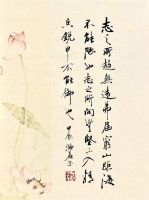 志之所趨無遠弗届窮山距海
不能限也志之所向無堅不入精
兵銳甲不能御也